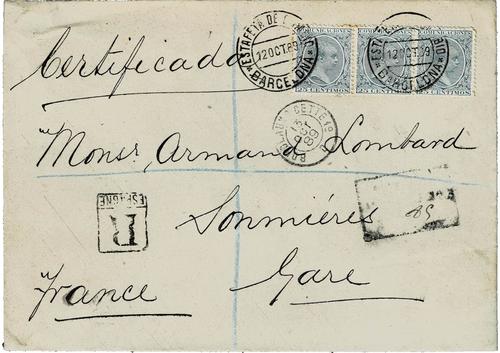 ESTAFETA DE CAMBIO
12 OCT 89
BARCELONA
COMUNICACIONES
25 CENTIMOS
ESTAFETA DE CAMBIO
12 OCT 89
BARCELONA
COMUNICACIONES
25 CENTIMOS
25 CENTIMOS
Certificado
CETTE
13 OCT 89
Monsr Armand Lombard
R
ESPAGNE
Sommiéres
85
France
Gare